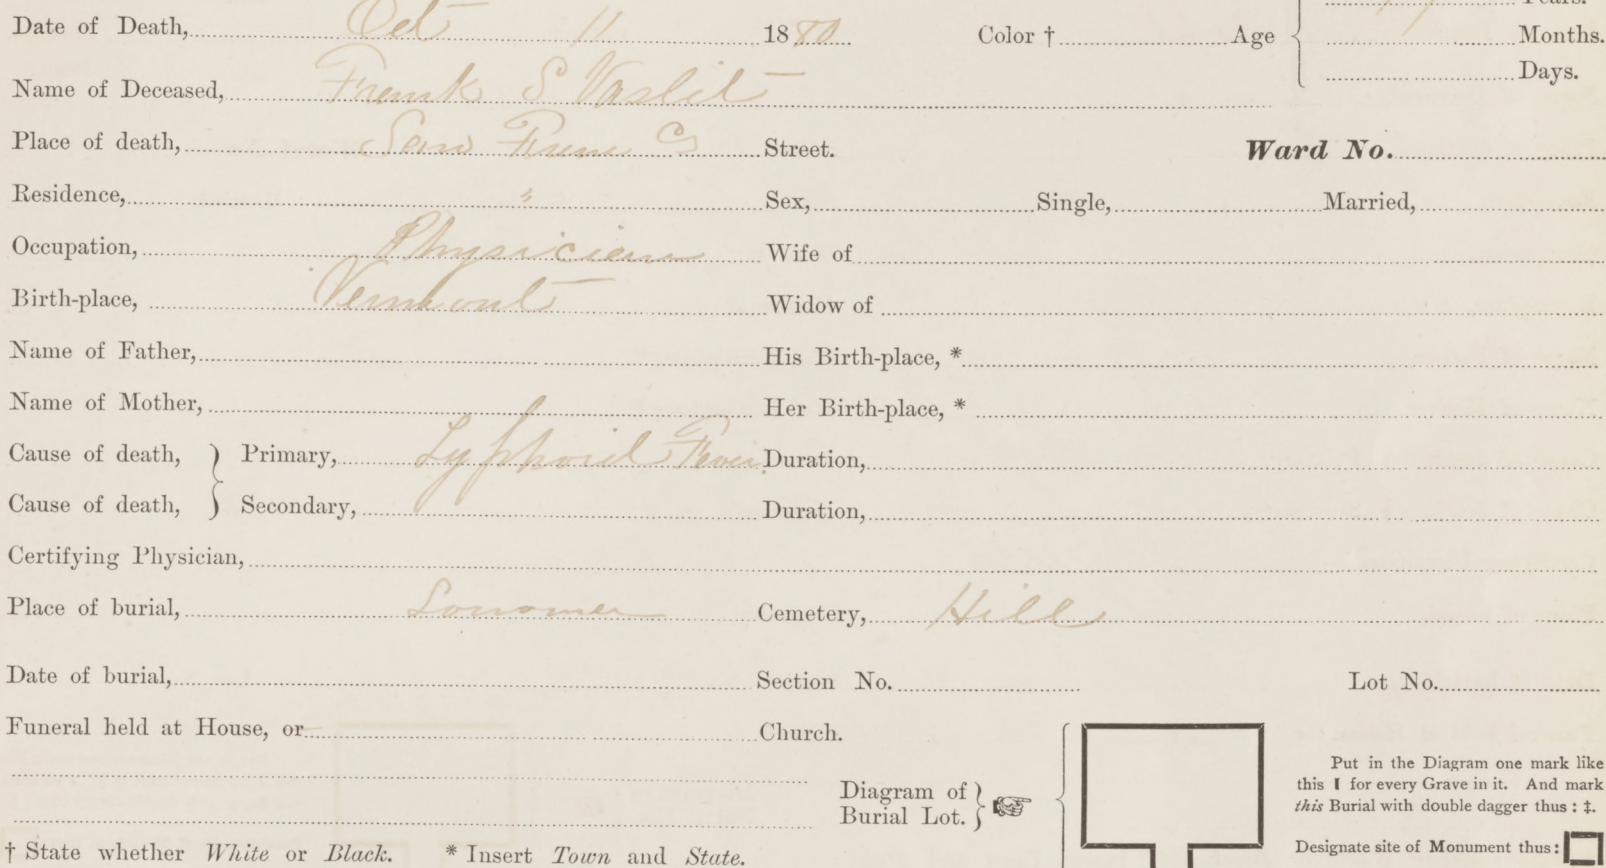 Years.
Date of Death, Oct 11 1880 Color † Age Months.
Days.
Name of Deceased, Frank S Vaslit
Place of death, San Franc Co Street. Ward No.
Residence, " Sex, Single, Married,
Occupation, Physician Wife of
Birth-place, Vermont Widow of
Name of Father, His Birth-place, *
Name of Mother, Her Birth-place, *
Cause of death, } Primary, Typhoid Fever Duration,
Cause of death, } Secondary, Duration,
Certifying Physician,
Place of burial, Sonoma Cemetery, Hill
Date of burial, Section No. Lot No.
Funeral held at House, or Church.
Diagram of
Burial Lot.
Put in the Diagram one mark like
this I for every Grave in it. And mark
this Burial with double dagger thus : ‡.
Designate site of Monument thus :
† State whether White or Black. * Insert Town and State.